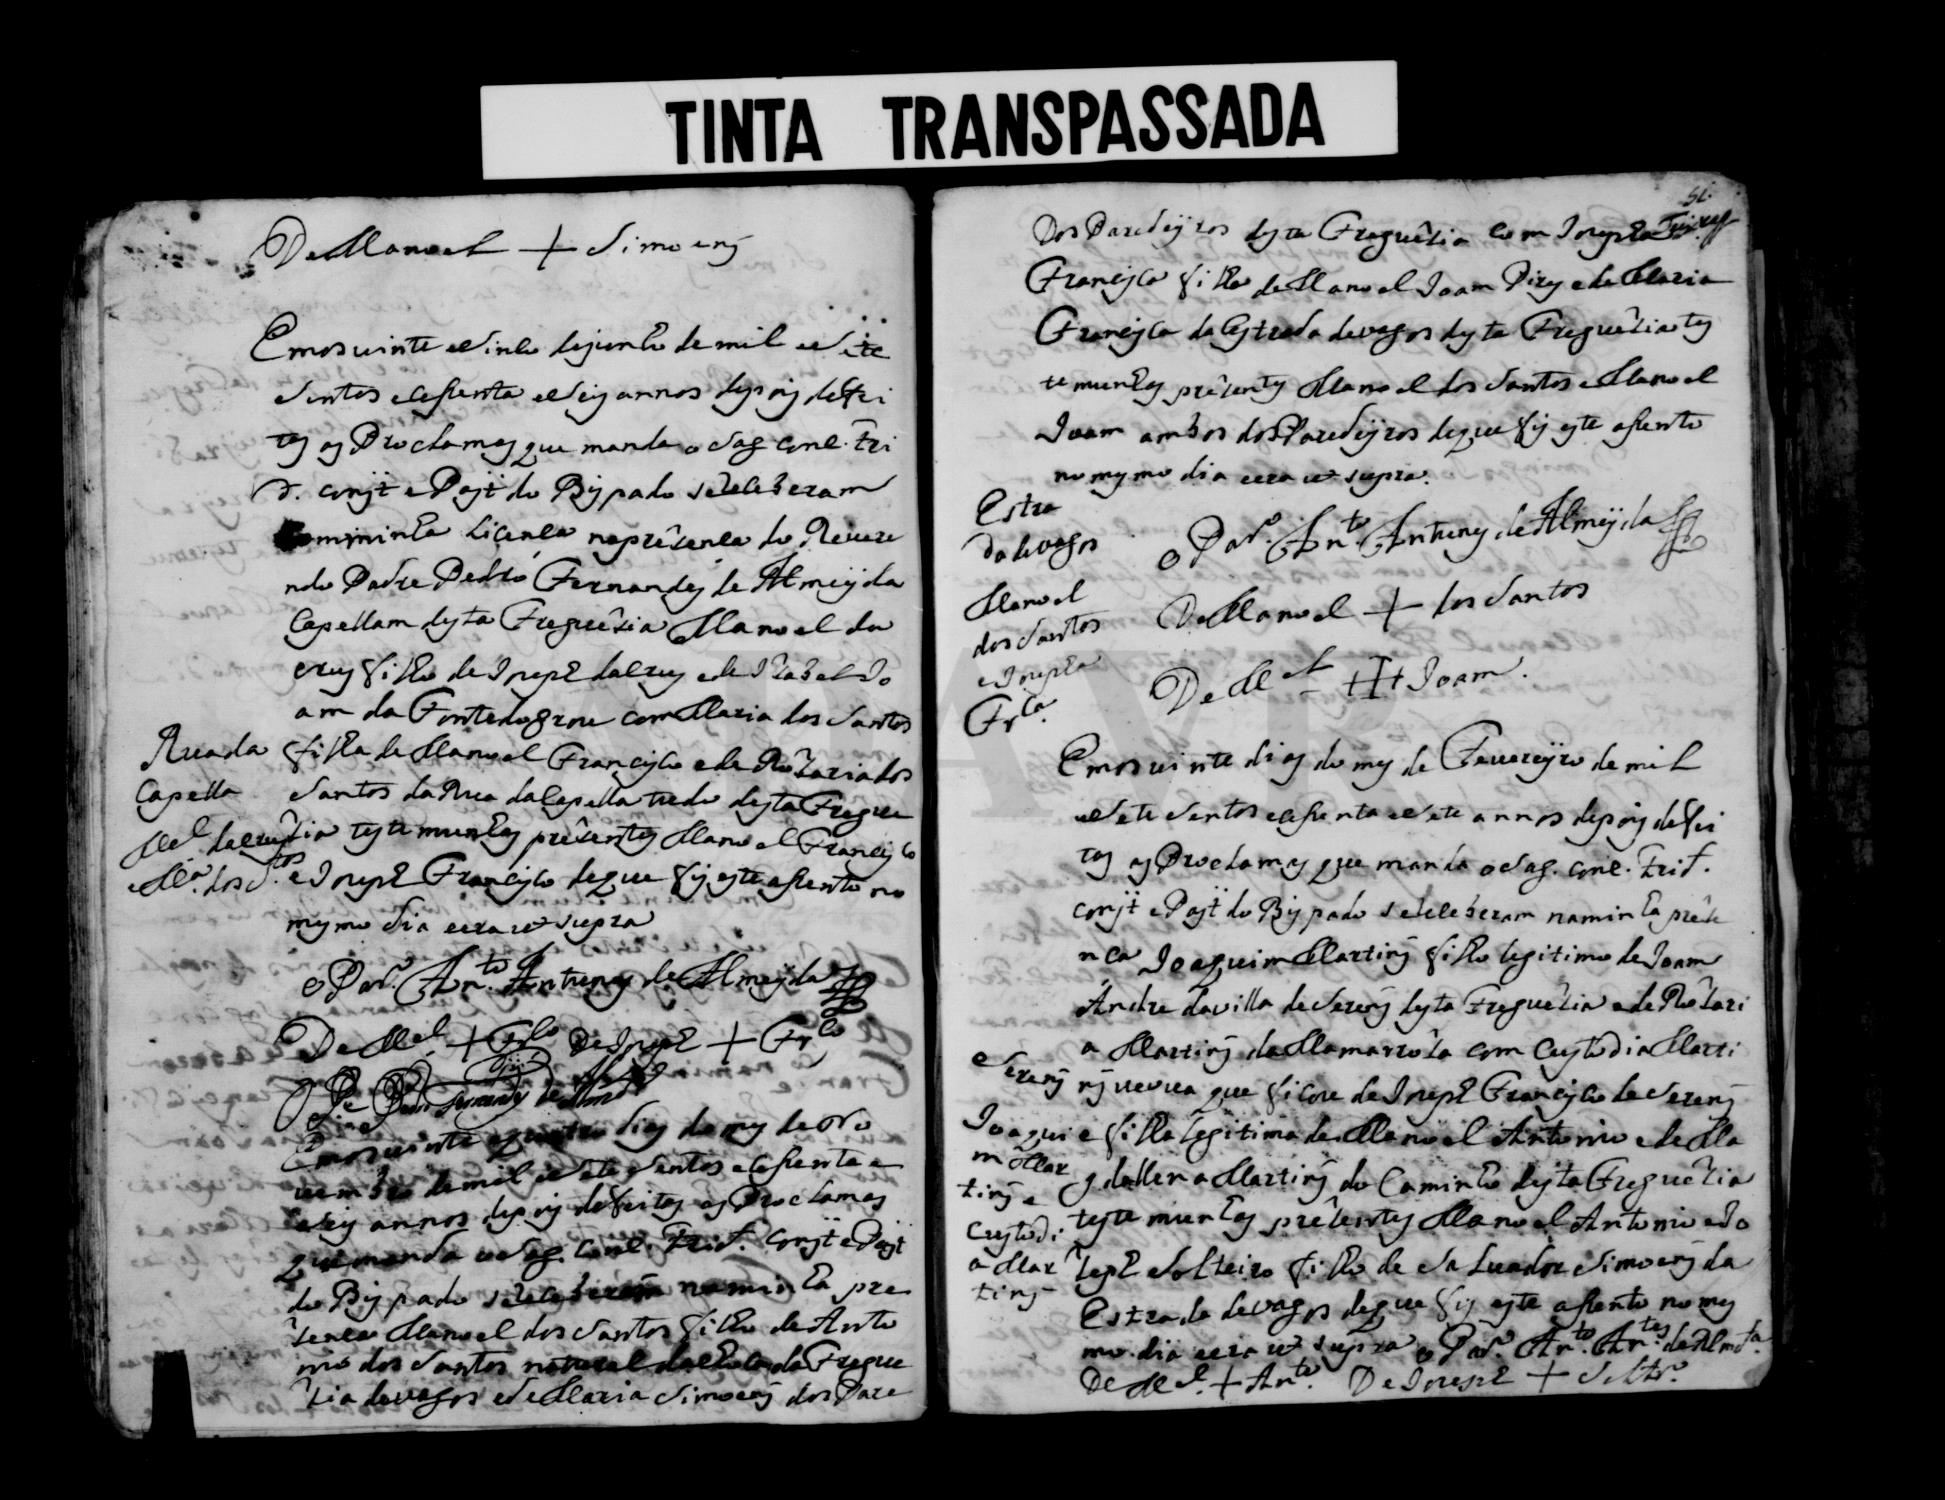 TINTA TRANSPASSADA
De Manoel + Simoens
Em os vinte e sinco de junho de mil e sete
sentos e sesenta e seis annos depois de fei
tos os Proclamas que manda o sag. conc. Tri
d. const e Post do Bispado se celebraram
Com minha licença na prezença do Revere
ndo Padre Pedro Fernandes de Almeyda
Capellam desta Freguezia Manoel da
crus filho de Joseph da crus e de Izabel Jo
am da Fonte do grou com Maria dos Santos
Rua da
Capella
Mel. da crus
e Ma. dos Stos
filha de Manoel Francisco e de Rozaria dos
Santos da Rua da Capella tudo desta Fregue
zia testemunhas prezentes Manoel Francisco
e Joseph Francisco de que fis este asento no
mesmo dia e era ut supra
o Par. Anto. Antunes de Almeyda
De Mel. + Frco De Joseph + Frco
Pe Pedro Fernandes de Almda
Em os vinte e quatro dias do mes de No
vembro de mil e sete sentos e sesenta e
seis annos depois de feitos os Proclamas
que manda o Sag. Conc. Trid. const e Post
do Bispado se celebraram na minha pre
zença Manoel dos Santos filho de Anto
nio dos Santos natural da da Fregue
zia de vagos e de Maria Simoens dos Pare
51
dos Paredeyros desta Freguezia com Josepha
Francisca filha de Manoel Joam Pires e de Maria
Francisca da Estrada de vagos desta Freguezia tes
temunhas prezentes Manoel dos Santos e Manoel
Joam ambos dos Paredeyros de que fis este asento
no mesmo dia e era ut supra.
Estra
da de vagos
Manoel
dos Santos
e Josepha
Frca.
o Par. Anto. Antunes de Almeyda
De Manoel + dos Santos
De Mel +++ Joam.
Em os vinte dias do mes de Fevereyro de mil
e sete sentos e sesenta e sete annos depois de fei
tos os Proclamas que manda o Sag. conc. Trid.
const e Post do Bispado se celebraram na minha preze
nca Joaquim Martins filho legitimo de Joam
Andre da villa de Serens desta Freguezia e de Rozari
a Martins da Mamarroza com Custodia Marti
Serens
Joaqui
m Mar
tins e
Custodi
a Mar
tins
ns veuva que ficou de Joseph Francisco de Serens
e filha legitima de Manoel Antonio e de Ma
gdallena Martins do Caminho desta Freguezia
testemunhas prezentes Manoel Antonio e Jo
zeph Solteiro filho de Salvador Simoens da
Estrada de vagos de que fis este asento no mes
mo dia e era ut supra o Par. Anto. Antes de Almda.
De Mel. + Anto. De Joseph + Soltro.